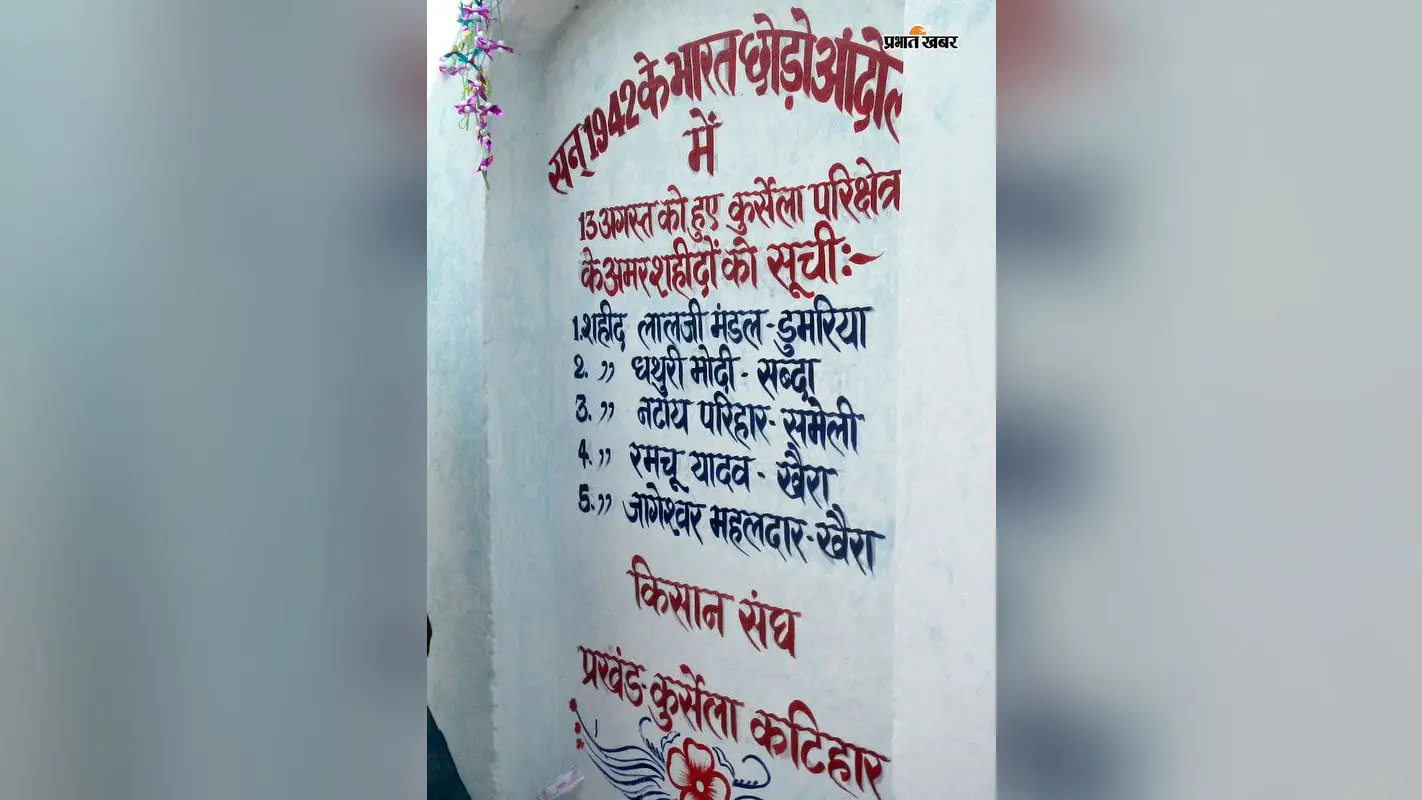 प्रभात खबर
सन् 1942 के भारत छोड़ो आंदोल
में
13 अगस्त को हुए कुर्सेला परिक्षेत्र
के अमर शहीदों की सूची:-
1. शहीद लालजी मंडल - डुमरिया
2. ,, धथुरी मोदी - सब्दा
3. ,, नटाय परिहार - समेली
4. ,, रमचू यादव - खैरा
5. ,, जागेश्वर महलदार - खैरा
किसान संघ
प्रखंड - कुर्सेला कटिहार